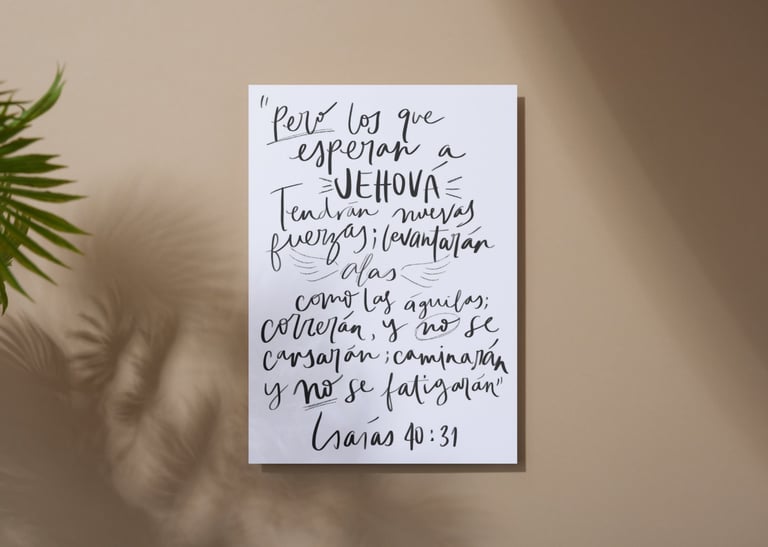 "Pero los que
esperan a
JEHOVÁ
Tendrán nuevas
fuerzas; levantarán
alas
como las águilas;
correrán, y no se
cansarán; caminarán
y no se fatigarán"
Isaías 40:31